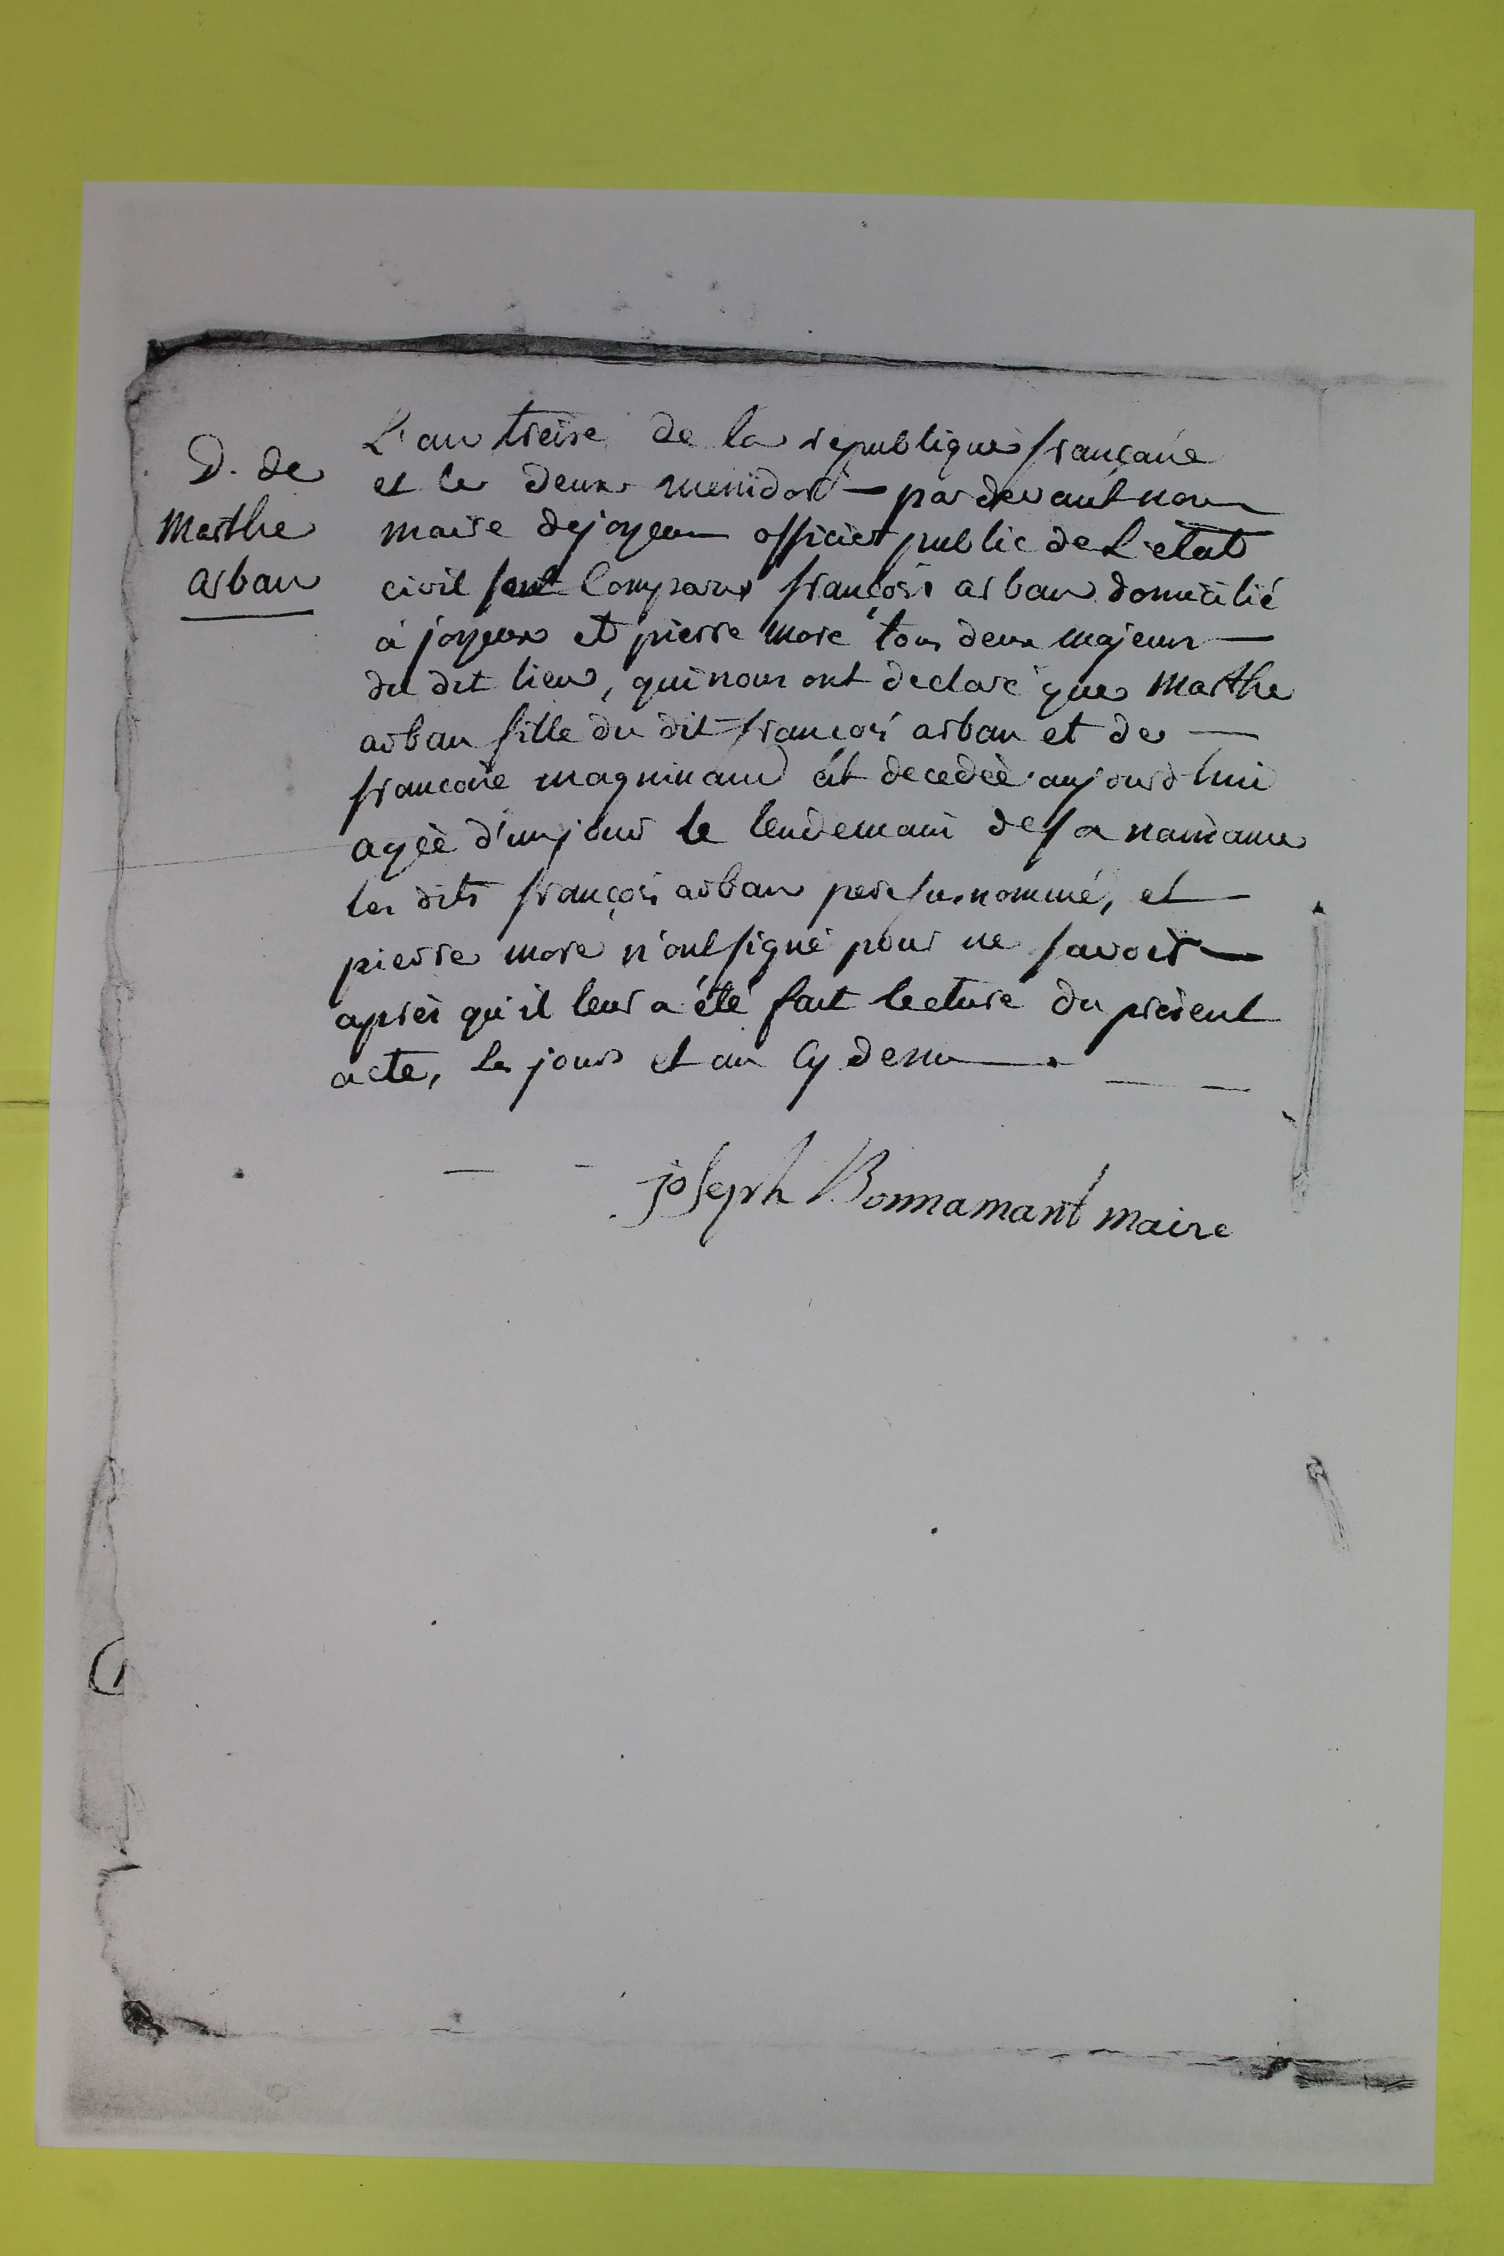 D. de
Marthe
arban
L'an treise de la republique françaíse
et le deux messidor — par devant nous
maire de joyeux officier public de L'état
civil sont Comparus françois arban domicilié
a joyeux et pierre more tous deux majeurs —
du dit lieu, qui nous ont declaré que Marthe
arban fille du dit françois arban et de —
francoise magninand est decedeè aujourd'hui
ageè d'un jour le lendemain de sa naissance
les dits françois arban pere susnommé, et —
pierre more n'ont signé pour ne savoir —
après qu'il leur a été fait lecture du présent
acte, les jour et an cy dessus — .
joseph Bonnamant maire